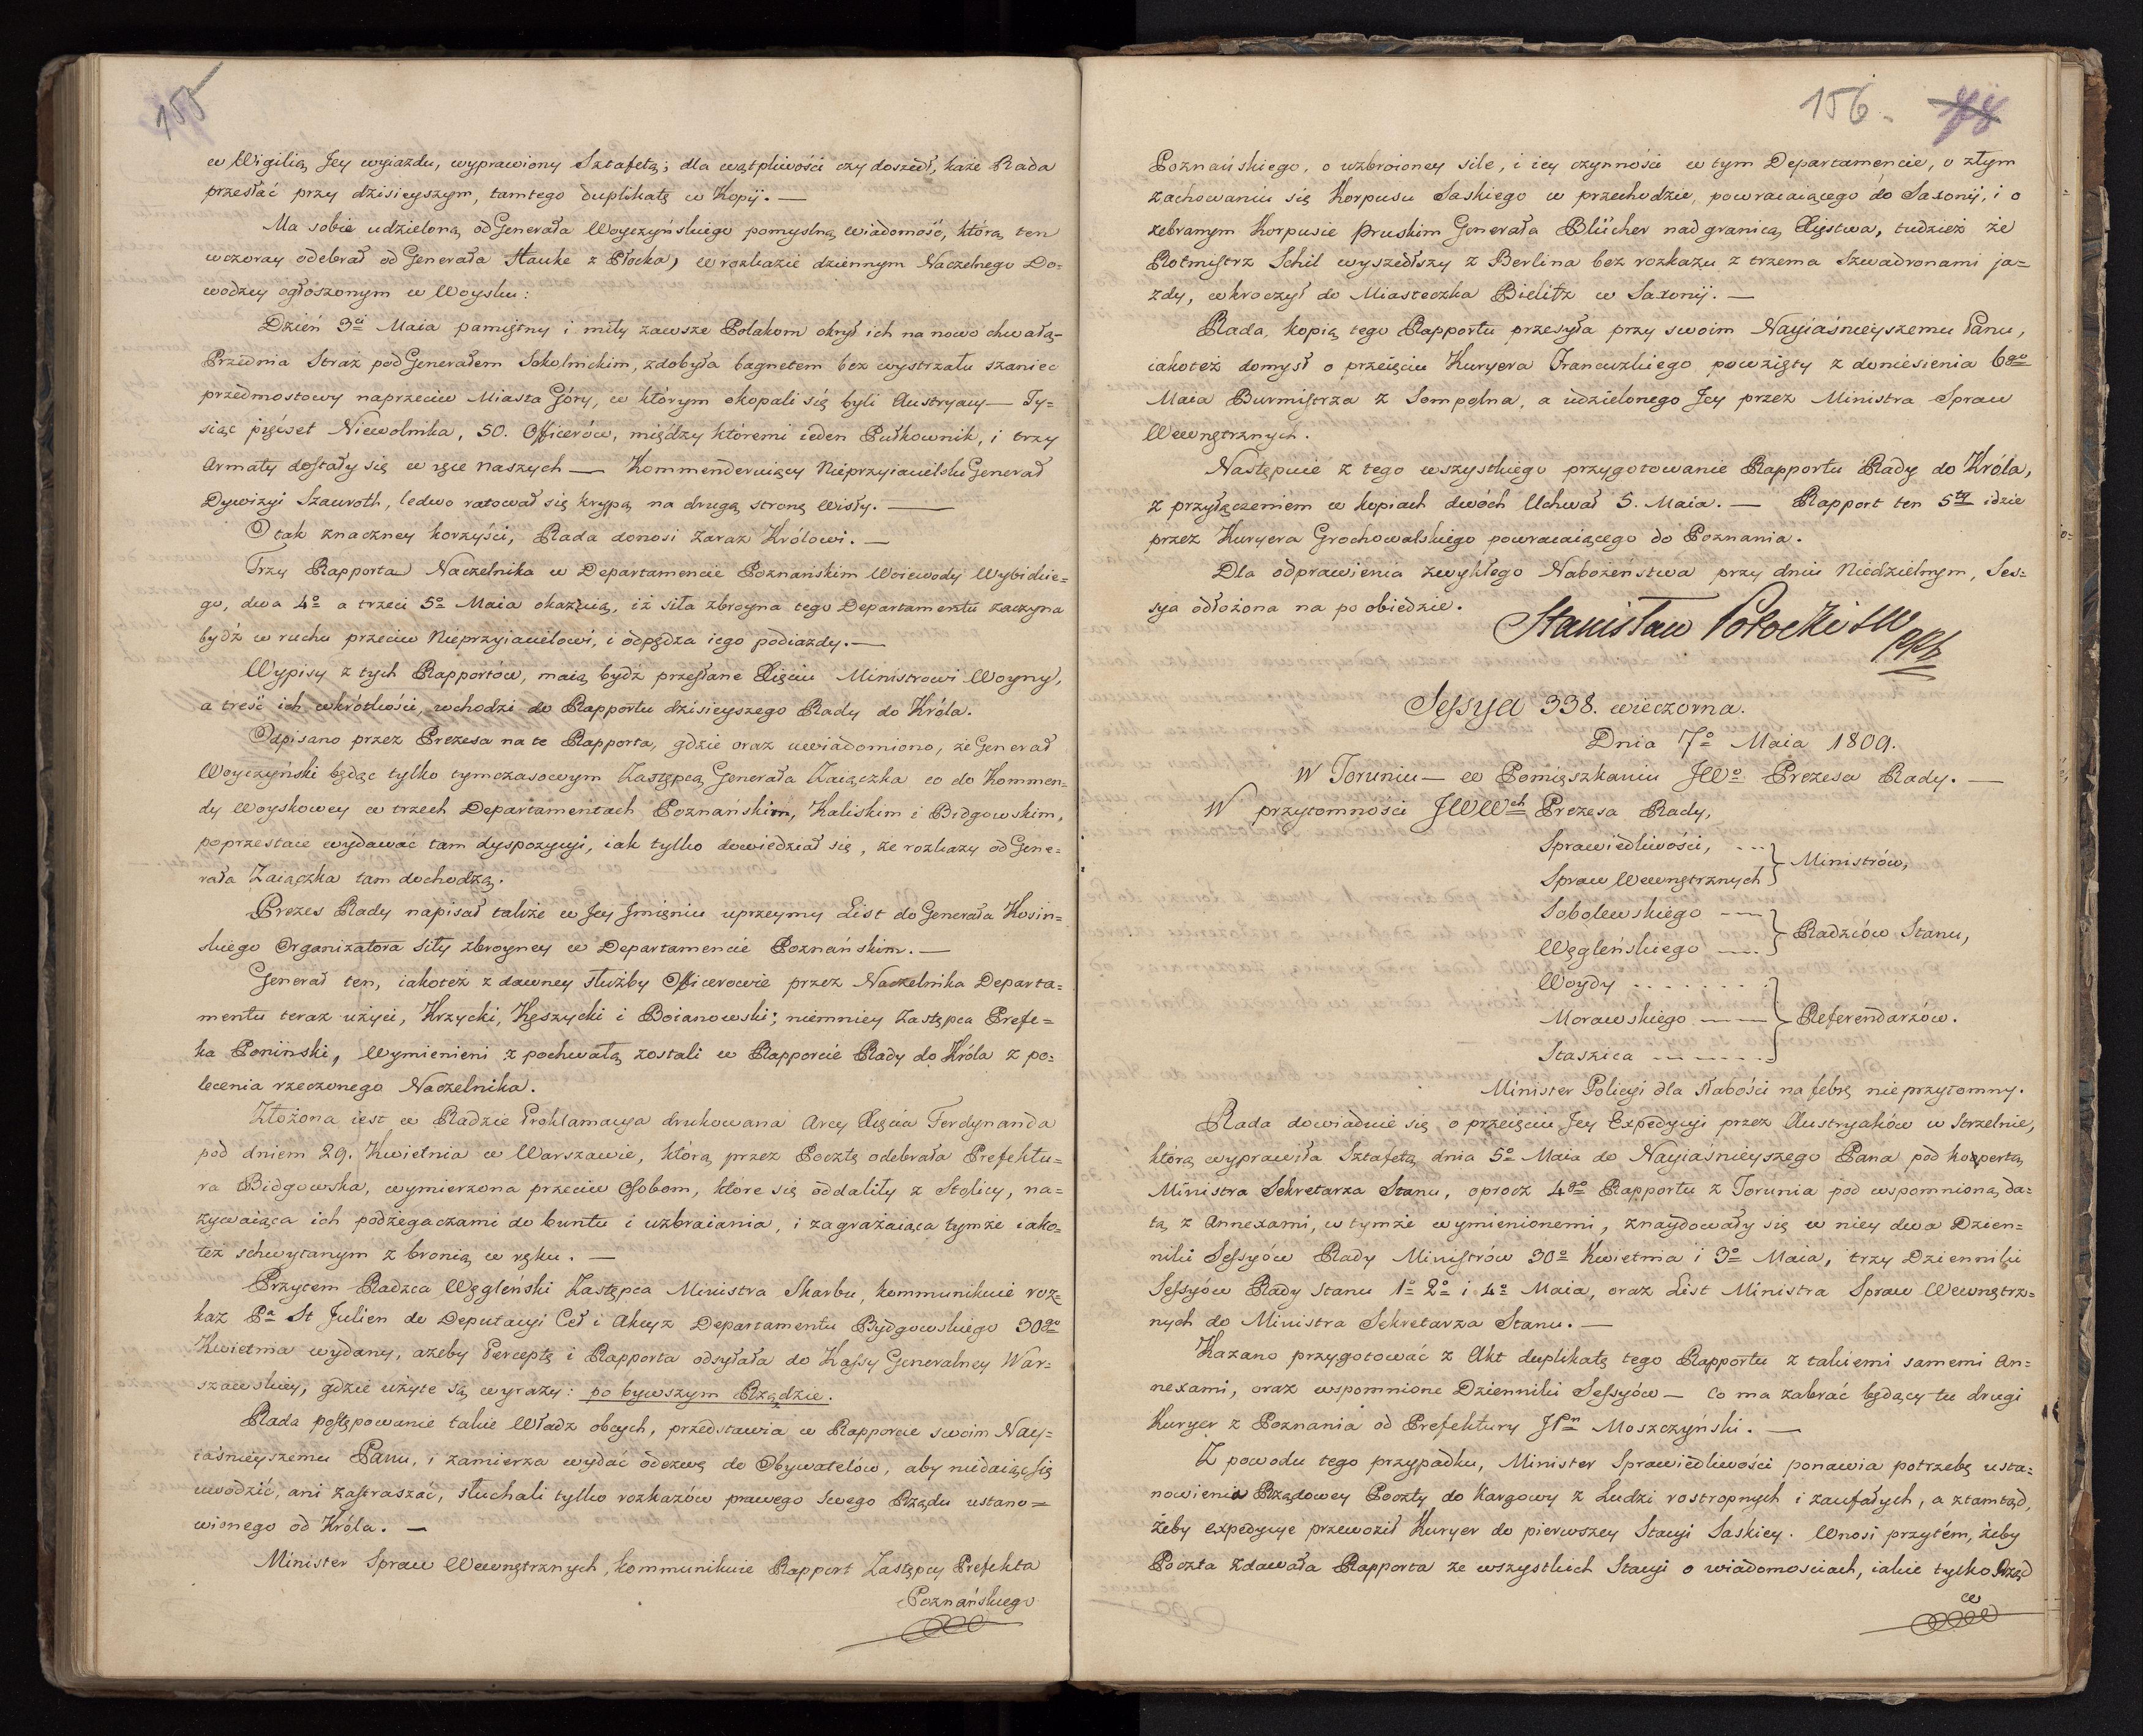 155
w Wigilią Jey wyiazdu, wyprawiony Sztafetą; dla wątpliwości czy doszedł, każe Rada
przesłać przy dzisieyszym, tamtego duplikatę w Kopij. —
Ma sobie udzieloną od Generała Woyczyńskiego pomyslną wiadomość, którą ten
wczoray odebrał od Generała Hauke z Płocka, w rozkazie dziennym Naczelnego Do=
wodzcy ogłoszonym w Woysku:
Dzień 3ci Maia pamiętny i miły zawsze Polakom okrył ich na nowo chwałą—
Przednia Straż pod Generałem Sokolnickim, zdobyła bagnetem bez wystrzału szaniec
przedmostowy naprzeciw Miasta Góry, w którym okopali się byli Austryacy — Ty=
siąc pięćset Niewolnika, 50. Officerów, między któremi ieden Pułkownik, i trzy
Armaty dostały się w ręce naszych — Kommenderuiący Nieprzyiacielski Generał
Dywizyi Szauroth, ledwo ratował się krypą na drugą stronę Wisły. —
O tak znaczney korzyści, Rada donosi zaraz Królowi. —
Trzy Rapporta Naczelnika w Departamencie Poznańskim Woiewody Wybickie=
go, dwa 4o a trzeci 5o Maia okazuią, iż siła zbroyna tego Departamentu zaczyna
bydź w ruchu przeciw Nieprzyiacielowi, i odpędza iego podiazdy. —
Wypisy z tych Rapportów, maią bydź przesłane Xięciu Ministrowi Woyny,
a treść ich wkrótkości, wchodzi do Rapportu dzisieyszego Rady do Króla.
Odpisano przez Prezesa na te Rapporta, gdzie oraz uwiadomiono, że Generał
Woyczyński będąc tylko tymczasowym Zastępcą Generała Zaiączka co do Kommen=
dy Woyskowey w trzech Departamentach Poznańskim, Kaliskim i Bidgowskim,
poprzestaie wydawać tam dyspozycyi, iak tylko dowiedział się, że rozkazy od Gene=
rała Zaiączka tam dochodzą.
Prezes Rady napisał także w Jey Jmieniu uprzeymy List do Generała Kosin=
skiego Organizatora siły zbroyney w Departamencie Poznańskim. —
Generał ten, iakoteż z dawney służby Officerowie przez Naczelnika Departa=
mentu teraz użyci, Krzycki, Kęszycki i Boianowski; niemniey Zastępca Prefe=
kta Poniński, wymienieni z pochwałą zostali w Rapporcie Rady do Króla z po=
lecenia rzeczonego Naczelnika.
Złożona iest w Radzie Proklamacya drukowana Arcy Xięcia Ferdynanda
pod dniem 29. Kwietnia w Warszawie, którą przez Pocztę odebrała Prefektu=
ra Bidgowska, wymierzona przeciw Osobom, które się oddaliły z Stolicy, na=
zywaiąca ich podżegaczami do buntu i uzbraiania, i zagrażaiąca tymże iako=
też schwytanym z bronią w ręku. —
Przytem Radzca Węgleński Zastępca Ministra Skarbu, kommunikuie roz=
kaz Pa St Julien do Deputacyi Ceł i Akcyz Departamentu Bydgowskiego 30go
Kwietnia wydany, ażeby Perceptę i Rapporta odsyłała do Kassy Generalney War=
szawskiey, gdzie użyte są wyrazy: po bywszym Rządzie.
Rada postępowanie takie Władz obcych, przedstawia w Rapporcie swoim Nay=
iaśnieyszemu Panu, i zamierza wydać odezwę do Obywatelów, aby niedaiąc się
uwodzić, ani zastraszać, słuchali tylko rozkazów prawego swego Rządu ustano=
wionego od Króla. —
Minister Spraw Wewnętrznych, kommunikuie Rapport Zastępcy Prefekta
Poznańskiego
156.
Poznańskiego, o uzbroioney sile, i iey czynności w tym Departamencie, o złym
zachowaniu się Korpusu Saskiego w przechodzie, powracaiącego do Saxonij, i o
zebranym Korpusie Pruskim Generała Blücher nad granicą Xięstwa, tudzież że
Rotmistrz Schil wyszedłszy z Berlina bez rozkazu z trzema Szwadronami ja=
zdy, wkroczył do Miasteczka Bielitz w Saxonij. —
Rada, kopią tego Rapportu przesyła przy swoim Nayiaśnieyszemu Panu,
iakoteż domysł o przeięciu Kuryera Francuzkiego powzięty z doniesienia 6go
Maia Burmistrza z Sompolna, a udzielonego Jey przez Ministra Spraw
Wewnętrznych.
Następuie z tego wszystkiego przygotowanie Rapportu Rady do Króla,
z przyłączeniem w kopiach dwóch Uchwał 5. Maia. — Rapport ten 5ty idzie
przez Kuryera Grochowalskiego powracaiącego do Poznania.
Dla odprawienia zwykłego Nabożeństwa przy dniu Niedzielnym, Ses=
sya odłożona na po obiedzie.
Stanisław Potocki
Sessya 338. wieczorna.
Dnia 7o Maia 1809.
W Toruniu — w Pomięszkaniu JWo Prezesa Rady. —
W przytomności JWWch Prezesa Rady,
Sprawiedliwości, ...
Spraw Wewnętrznych } Ministrów,
Sobolewskiego —
Węgleńskiego — } Radzców Stanu,
Woydy .......
Morawskiego —
Staszica — } Referendarzów.
Minister Policyi dla słabości na febrę nieprzytomny.
Rada dowiaduie się o przeięciu Jey Expedycyi przez Austryaków w Strzelnie,
którą wyprawiła Sztafetą dnia 5o Maia do Nayiaśnieyszego Pana pod kopertą
Ministra Sekretarza Stanu, oprocz 4go Rapportu z Torunia pod wspomnioną da=
tą z Annexami, w tymże wymienionemi, znaydowały się w niey dwa Dzien=
niki Sessyów Rady Ministrów 30o Kwietnia i 3o Maia, trzy Dzienniki
Sessyów Rady Stanu 1o 2o i 4o Maia, oraz List Ministra Spraw Wewnętrz=
nych do Ministra Sekretarza Stanu. —
Kazano przygotować z Akt duplikatę tego Rapportu z takiemi samemi An=
nexami, oraz wspomnione Dzienniki Sessyów — co ma zabrać będący tu drugi
Kuryer z Poznania od Prefektury JPn Moszczyński. —
Z powodu tego przypadku, Minister Sprawiedliwości ponawia potrzebę usta=
nowienia Rządowey Poczty do Kargowy z Ludzi rostropnych i zaufałych, a ztamtąd,
żeby expedycye przewoził Kuryer do pierwszey Stacyi Saskiey. Wnosi przytém, żeby
Poczta zdawała Rapporta ze wszystkich Stacyi o wiadomosciach, iakie tylko Rząd